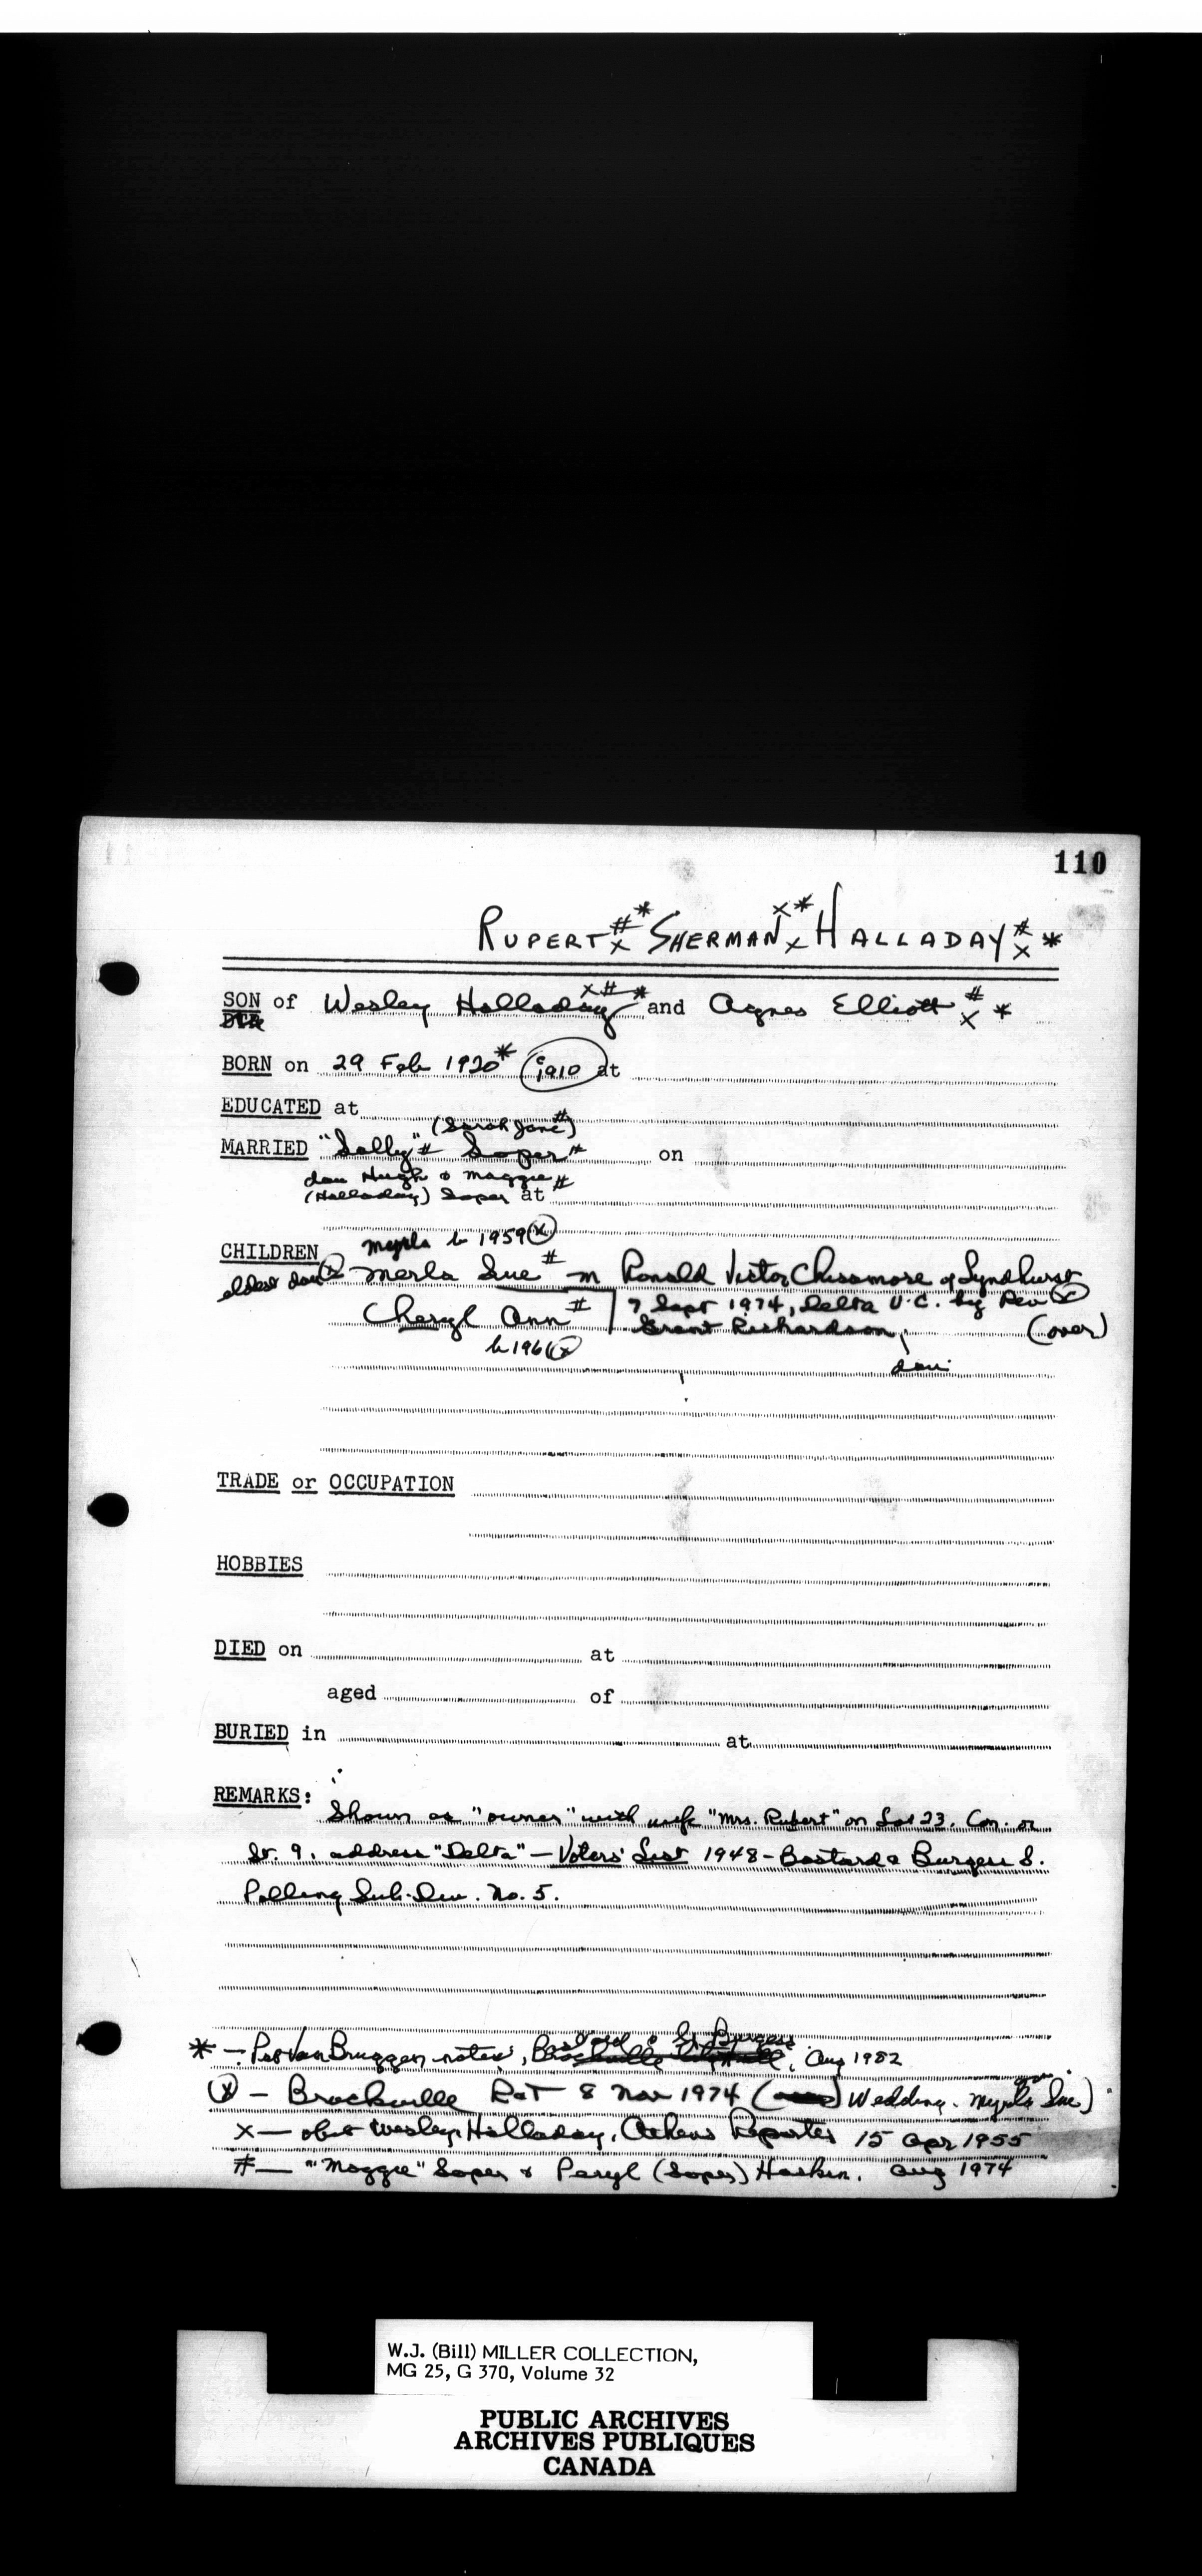 110
RUPERT #* x SHERMAN x* x HALLADAY # x *
SON of Wesley Halladay x#* and Agnes Elliott # x *
BORN on 29 Feb 1920* (c 1910) at
EDUCATED at
(Sarah Jane #)
MARRIED "Sally" # Soper # on
dau Hugh & Maggie #
(Halladay) Soper at
Myrla b 1959 (x)
CHILDREN
eldest dau (x) Merla Sue # m Ronald Victor Chissamore of Lyndhurst
Cheryl Ann # 7 Sept 1974, Delta U.C. by Rev (x)
Grant Richardson, (over)
b 196 (x)
dau
TRADE or OCCUPATION
HOBBIES
DIED on at
aged of
BURIED in at
REMARKS:
Shown as "owner" with wife "Mrs. Rupert" on Lot 23, Con. or
St. 9, address "Delta" — Voters' List 1948 - Bastard & Burgess S.
Polling Sub-Div. No. 5.
* — Per Van Bruggen notes, Bastard & S. Burgess, Aug 1982
(x) — Brockville R&T 8 Nov 1974 ( ) Wedding. Myrla Sue)
x — obit Wesley Halladay, Athens Reporter 15 Apr 1955
# — "Maggie" Soper & Peryl (Soper) Haskin. Aug 1974
W.J. (Bill) MILLER COLLECTION,
MG 25, G 370, Volume 32
PUBLIC ARCHIVES
ARCHIVES PUBLIQUES
CANADA